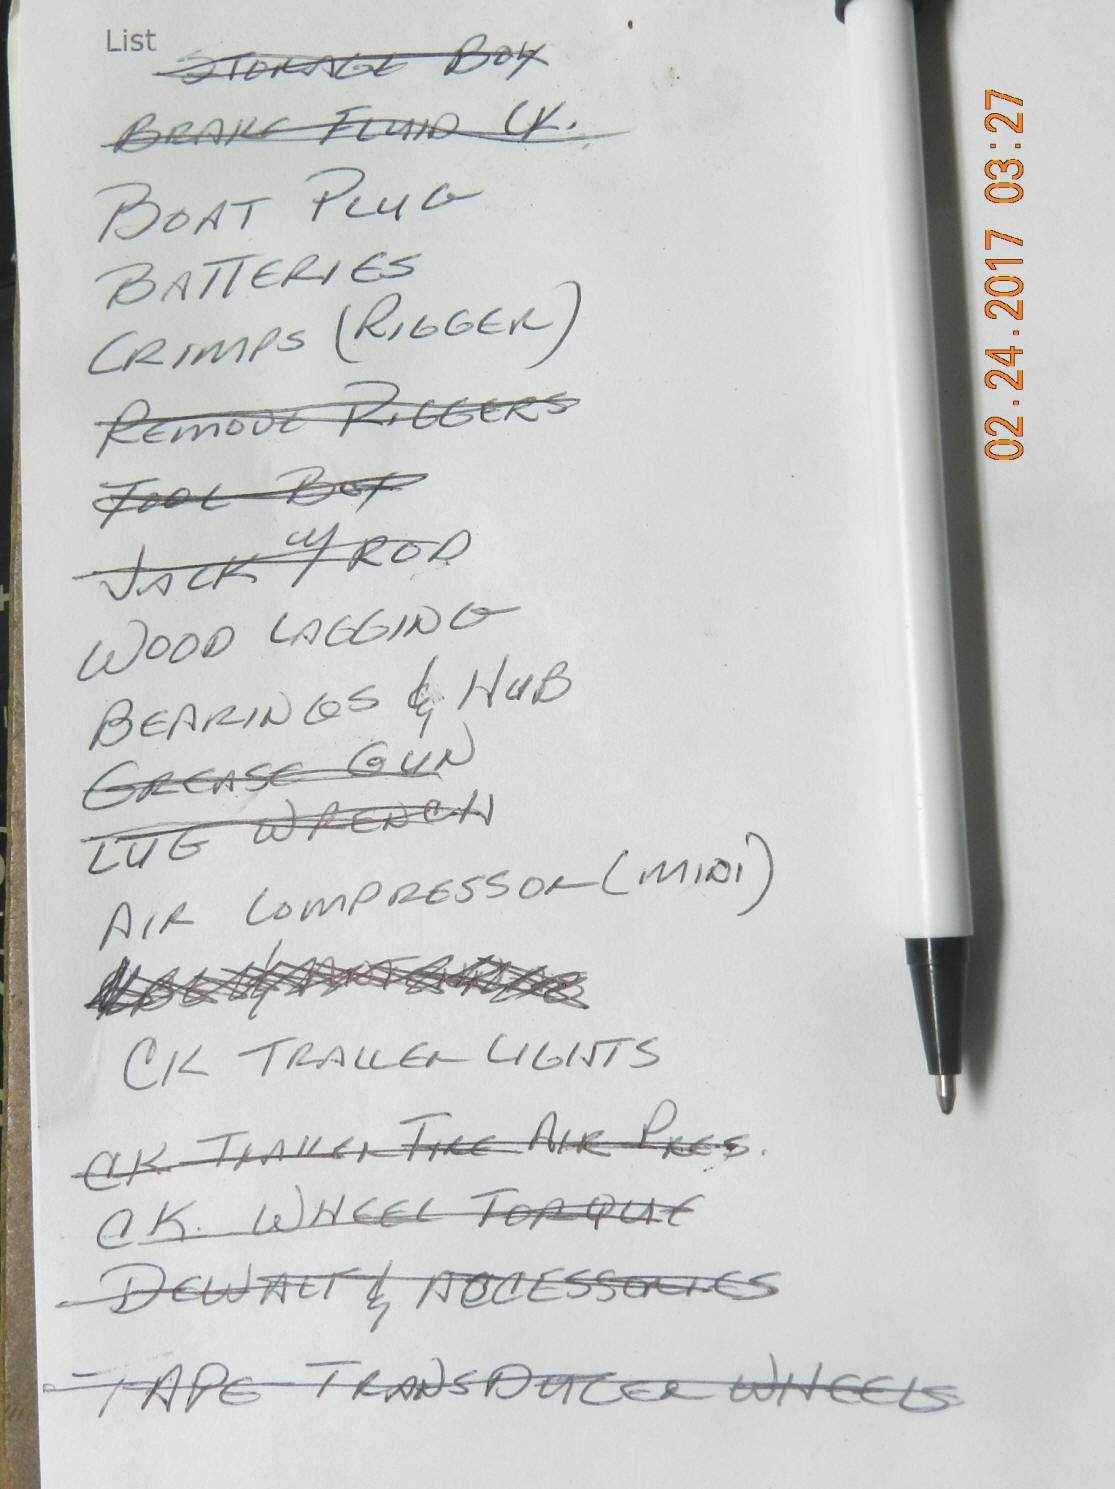 List
STORAGE BOX
BRAKE FLUID CK.
BOAT PLUG
BATTERIES
CRIMPS (RIGGER)
REMOVE RIGGERS
TOOL BOX
JACK W/ ROD
WOOD LAGGING
BEARINGS & HUB
GREASE GUN
LUG WRENCH
AIR COMPRESSOR (MINI)
CK TRAILER LIGHTS
CK. TRAILER TIRE AIR PRES.
CK. WHEEL TORQUE
DEWALT & ACCESSORIES
TAPE TRANSDUCER WHEELS
02.24.2017 03:27